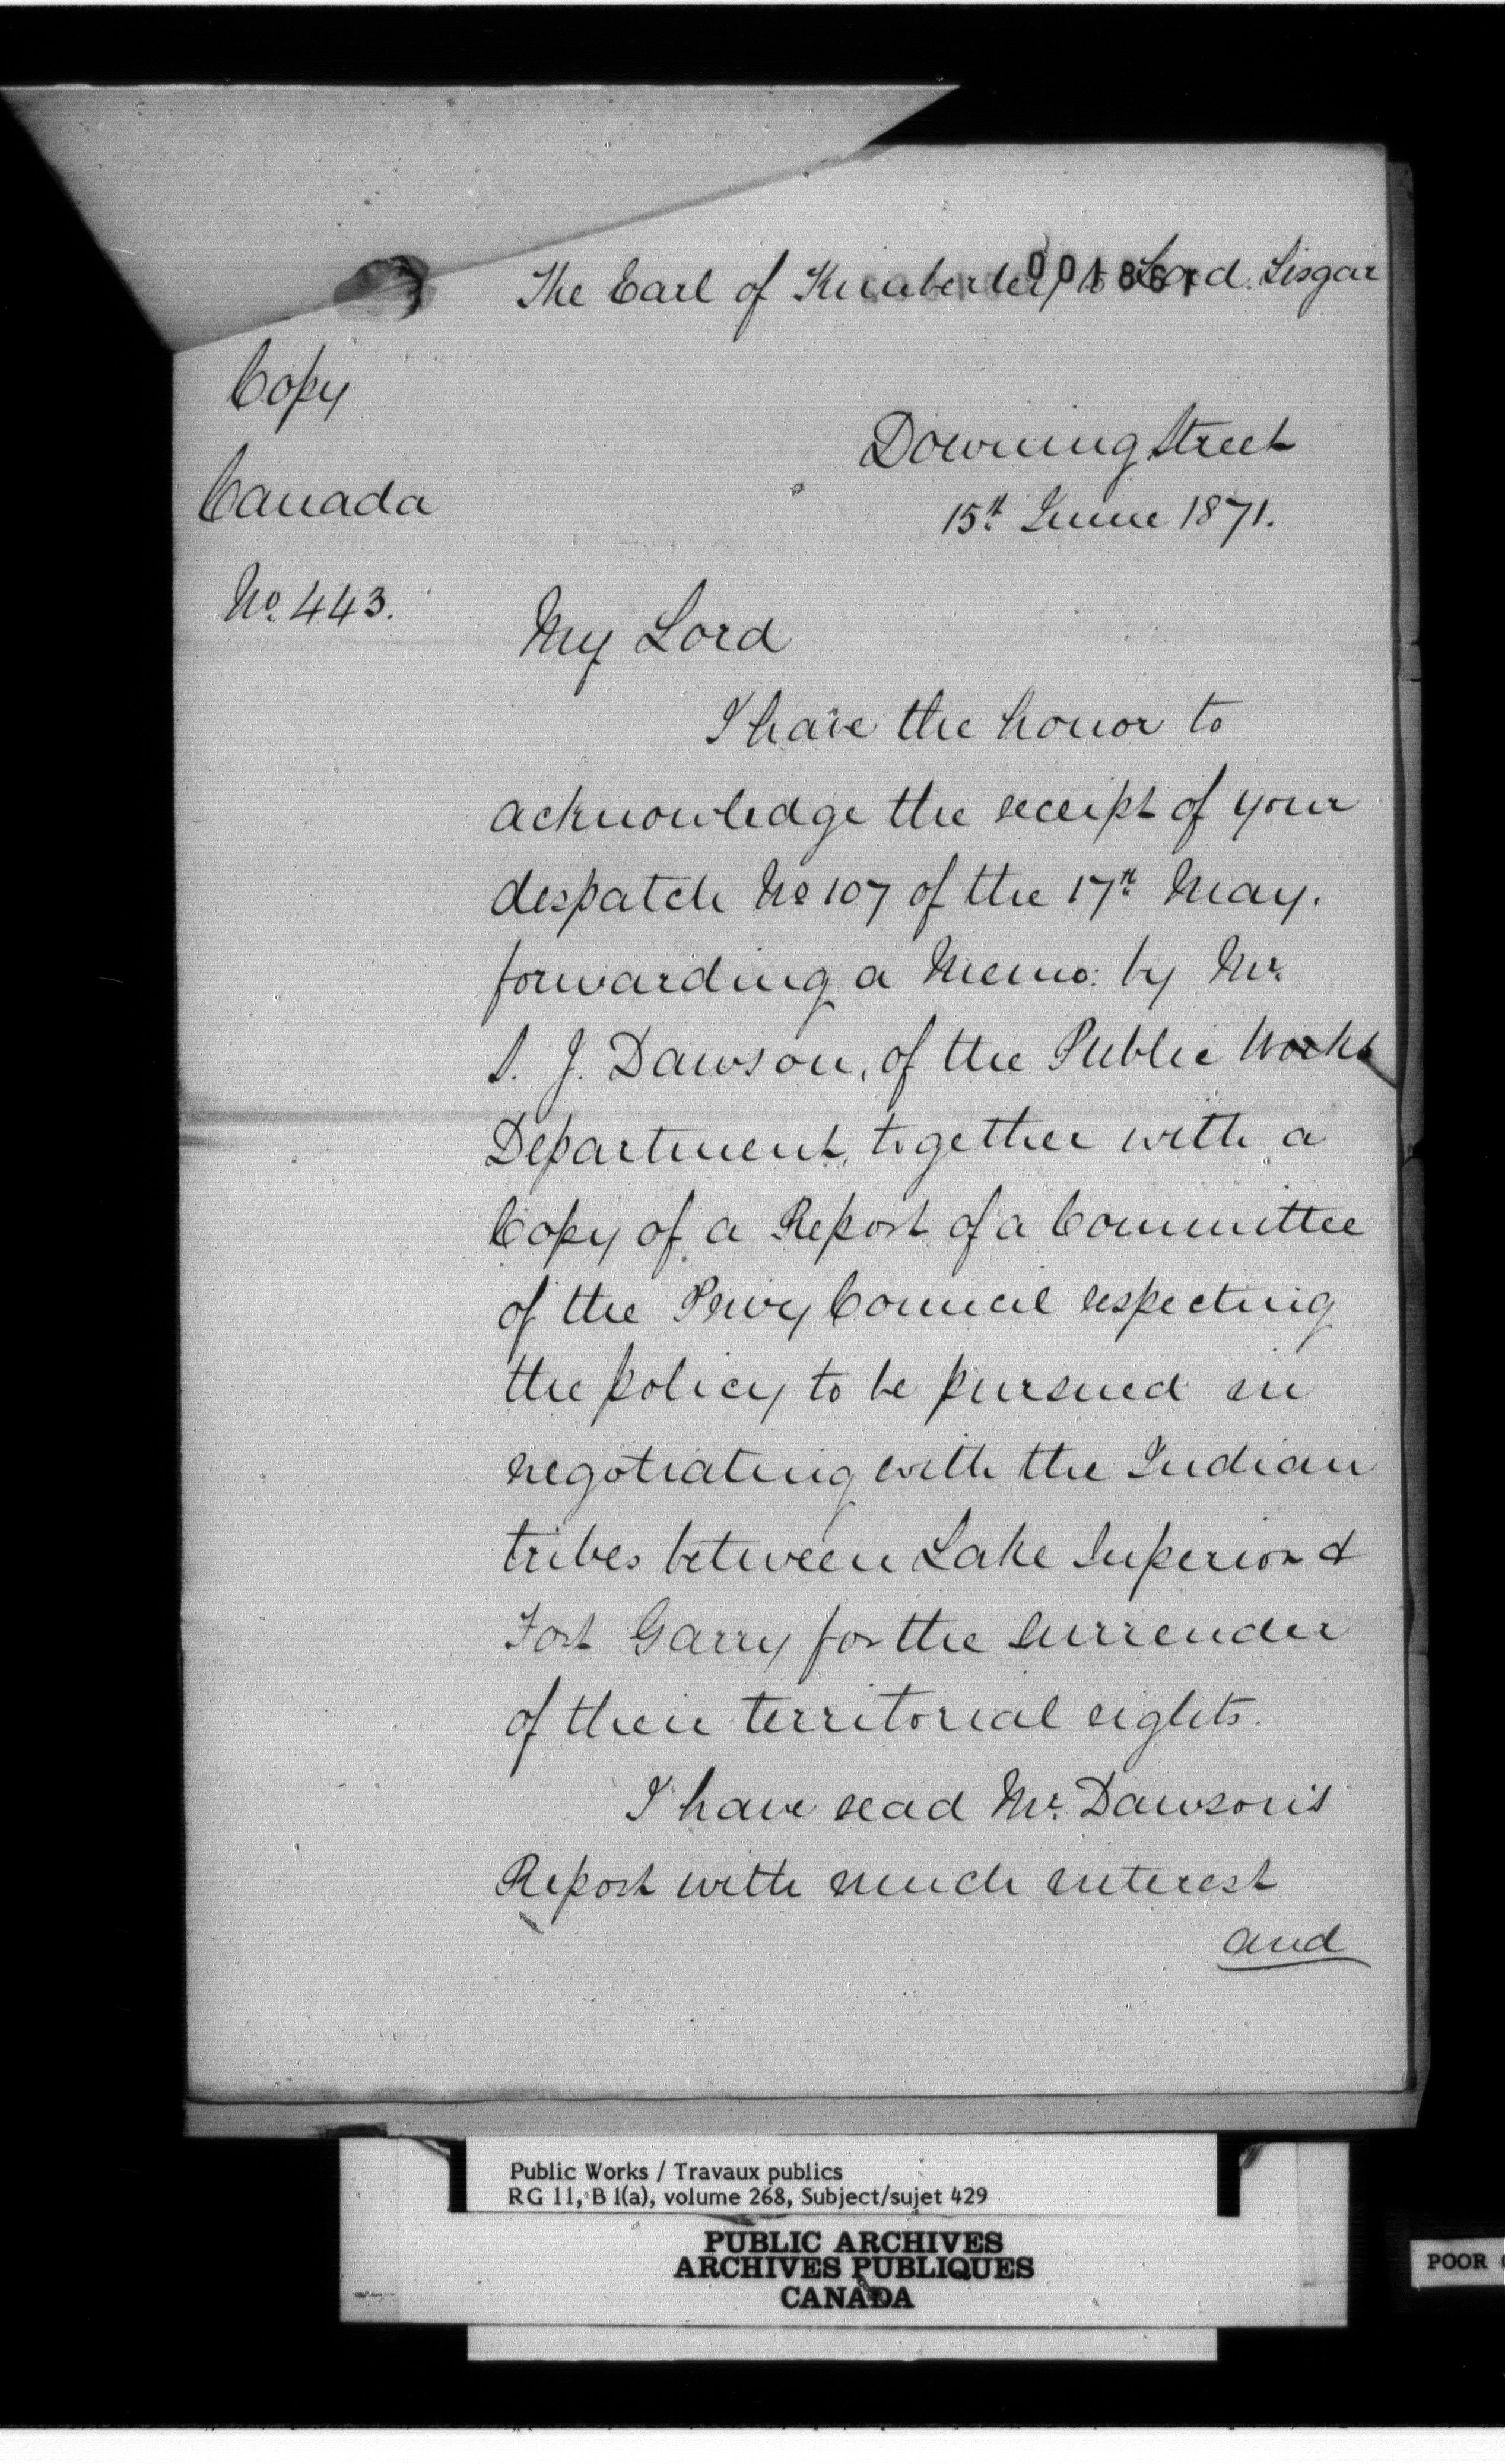 The Earl of Kimberley to Lord Lisgar
001861
Copy
Canada
No. 443.
Downing Street
15th June 1871.
My Lord
I have the honor to
acknowledge the receipt of your
despatch No 107 of the 17th May.
forwarding a Memo: by Mr.
S. J. Dawson, of the Public Works
Department, together with a
Copy of a Report of a Committee
of the Privy Council respecting
the policy to be pursued in
negotiating with the Indian
tribes between Lake Superior &
Fort Garry for the surrender
of their territorial rights.
I have read Mr. Dawson's
Report with much interest
and
Public Works / Travaux publics
RG 11, B 1(a), volume 268, Subject/sujet 429
PUBLIC ARCHIVES
ARCHIVES PUBLIQUES
CANADA
POOR